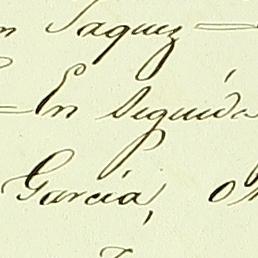 n Jaquez —
— En Seguida
Garcia, o